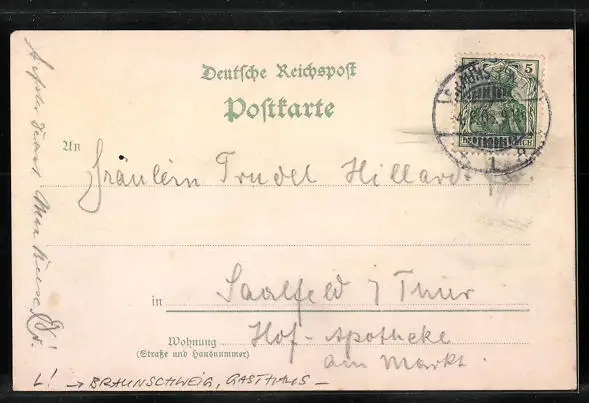 Deutsche Reichspost
Postkarte
5
REICH
An Fräulein Trudel Hillard
in Saalfeld i/Thür
Wohnung Hof-Apotheke
(Straße und Hausnummer) am Markt.
L! → BRAUNSCHWEIG, GASTHAUS –